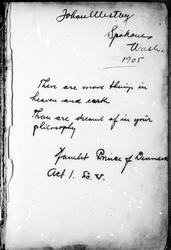 John Westby
Spokane
Wash.
1905
There are more things in
heaven and earth
Than are dreamed of in your
philosophy
Hamlet Prince of Denmark
Act 1. Sc. V.